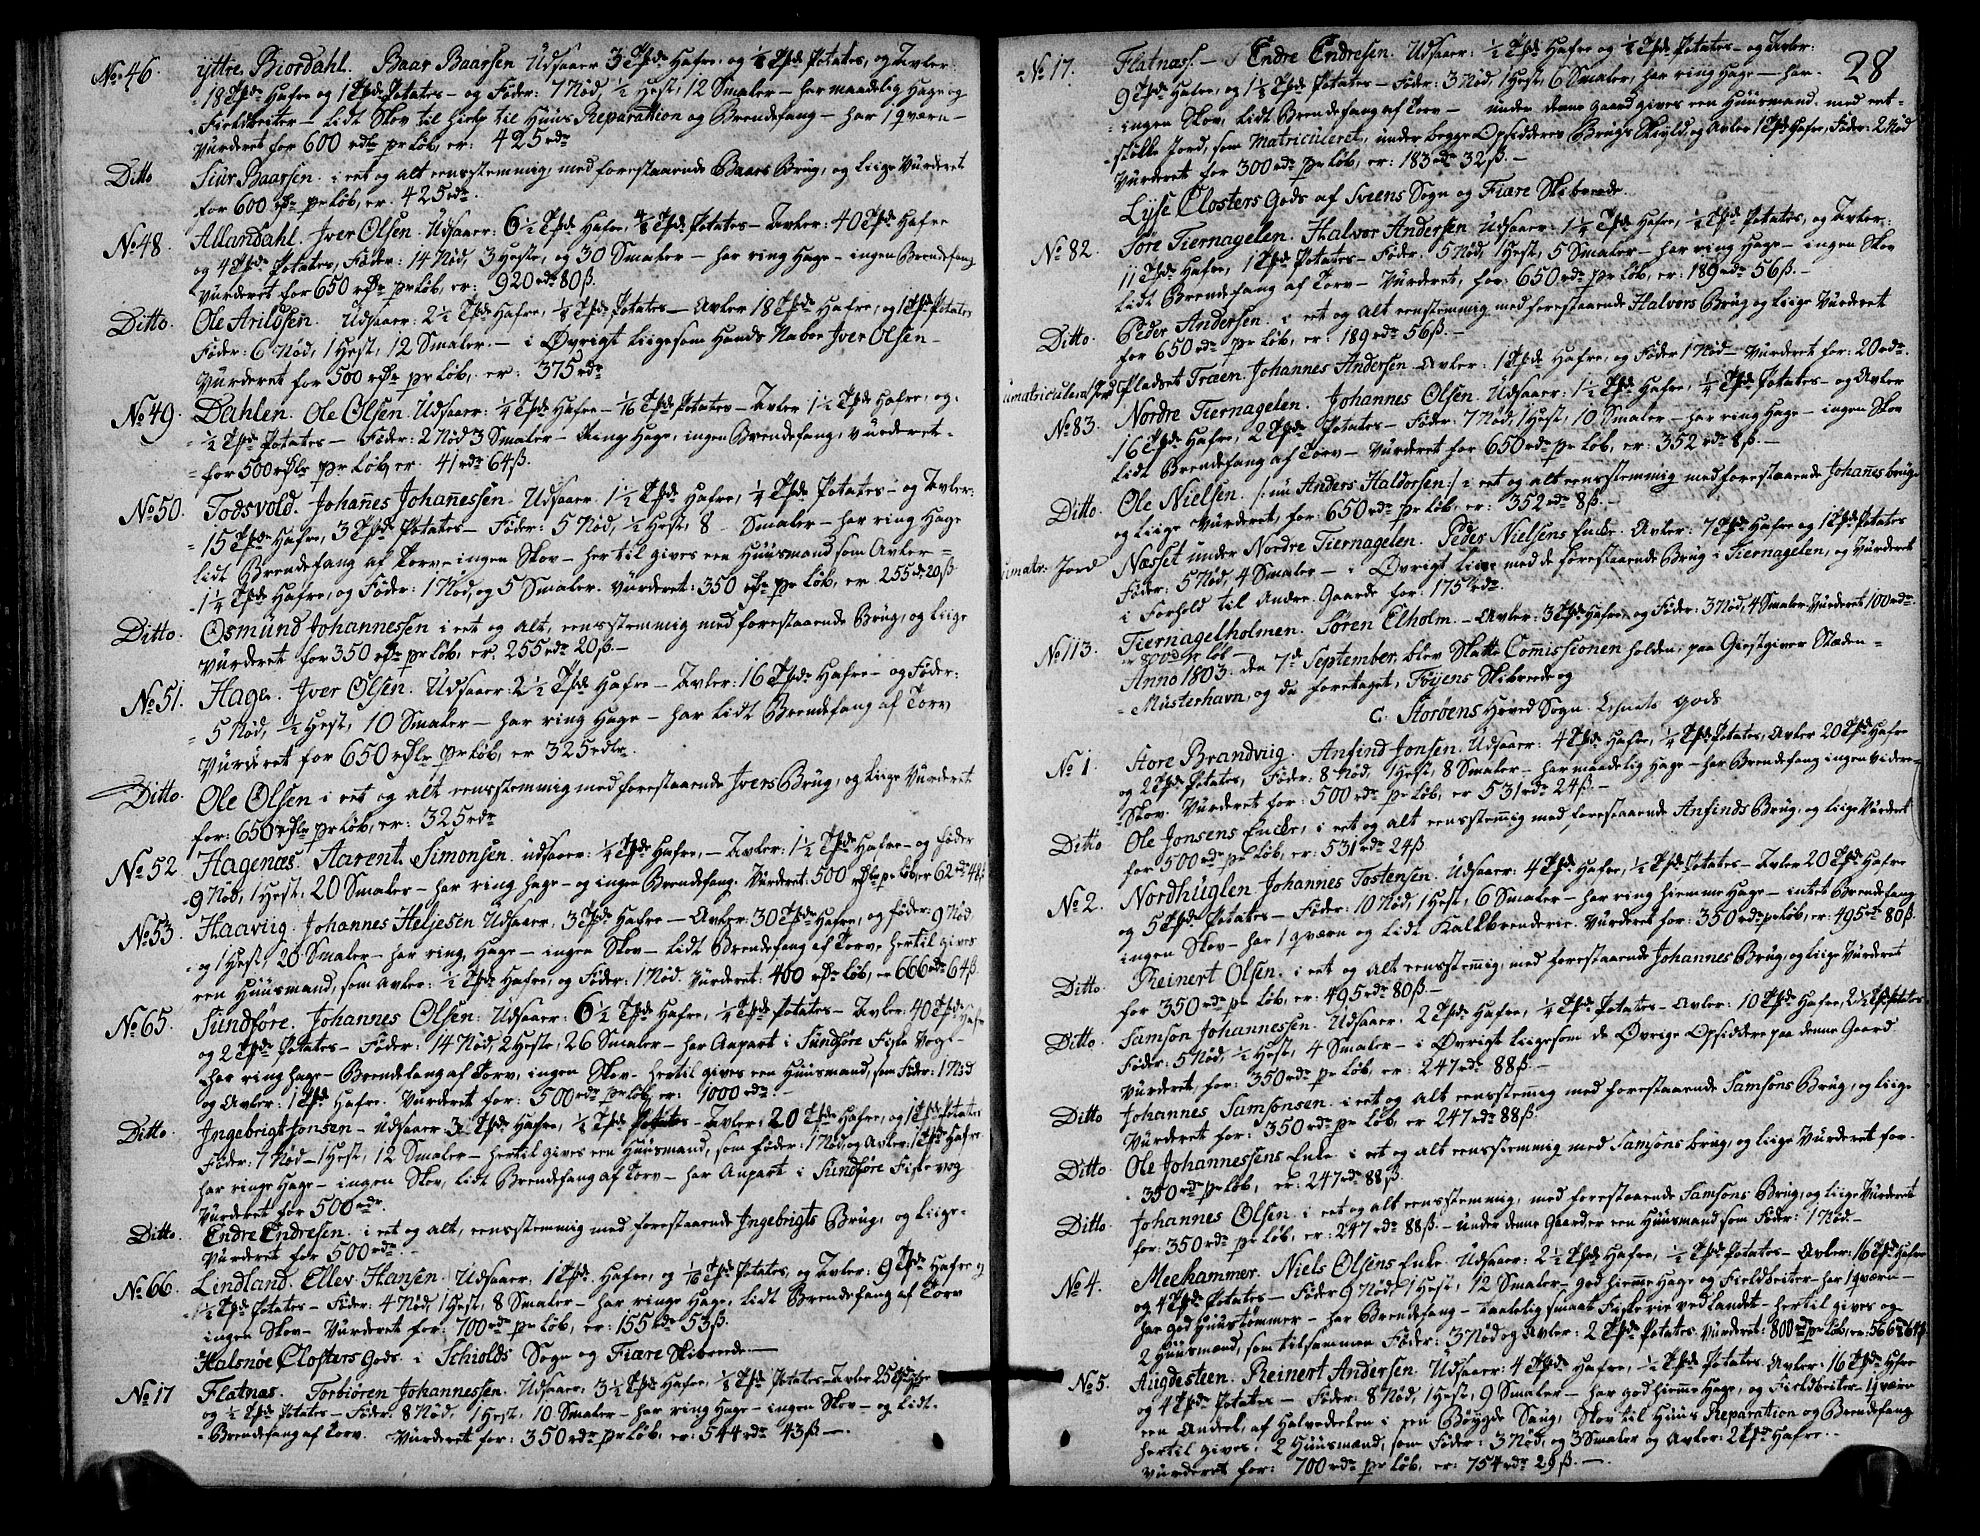 No. 46. ÿttre Biordahl. Baar Baarsen Udsaaer 3 Tpde Hafre, og 1/8 Tpde Potates, og Avler
18 Tpde Hafre og 1 Tpde Potates – og Føder: 7 Nød, 1/2 Hest, 12 Smaler – har maadelig Hage og
Fieldbeiter – lidt Skov til hielp til Huus Reparation og Brendefang – har 1 qværn –
Vurderet for 600 rdlr pr Løb, er: 425 rdr
Ditto Siur Baarsen i eet og alt eensstemmig, med forestaaende Baars Brug, og liige Vurderet
for 600 rdlr pr Løb, er. 425 rdr.
No. 48. Allandahl. Iver Olsen. Udsaaer: 6 1/2 Tpde Hafre, 4/8 Tpde Potates – Avler: 40 Tpde Hafre
og 4 Tpde Potates, Føder: 14 Nød, 3 Heste, og 30 Smaler – har ring Hage – ingen Brendefang
Vurderet for 650 rdlr pr Løb, er: 920 rdr 80 ß.
Ditto. Ole Arildsen. Udsaaer: 2 1/2 Tpde Hafre, 1/8 Tpde Potates – Avler 18 Tpde Hafre, og 1 Tpde Potates
Føder: 6 Nød, 1 Hest, 12 Smaler – i Øvrigt liigesom Hands Naboe Iver Olsen –
Vurderet for 500 rdlr pr Løb, er: 375 rdr
No. 49. Dahlen. Ole Olsen. Udsaaer: 1/4 Tpde Hafre – 1/16 Tpde Potates – Avler 1 1/2 Tpde Hafre, og
1/2 Tpde Potates – Føder: 2 Nød 3 Smaler – Ring Hage, ingen Brendefang, Vurderet
for 500 rdlr pr Løb, er. 41 rdr 64 ß.
No. 50. Todsvold. Johañes Johañessen. Udsaaer 1 1/2 Tpde Hafre, 1/4 Tpde Potates – og Avler:
15 Tpde Hafre, 3 Tpde Potates – Føder: 5 Nød, 1/2 Hest, 8 Smaler – har ring Hage
lidt Brendefang af Torv – ingen Skov – her til gives een Huusmand som Avler
1 1/4 Tpde Hafre, og Føder: 1 Nød, og 5 Smaler. Vurderet: 350 rdlr pr Løb, er 255 rdr 20 ß.
Ditto. Osmund Johannessen i eet og alt, eensstemmig med forestaaende Brug, og liige
Vurderet for 350 rdlr pr Løb, er: 255 rdr 20 ß. –
No. 51. Hage. Iver Olsen. Udsaaer: 2 1/2 Tpde Hafre – Avler: 16 Tpde Hafre – og Føder:
5 Nød, 1/2 Hest, 10 Smaler – har ring Hage – har lidt Brendefang af Torv
Vurderet for 650 rdlr pr Løb, er 325 rdlr.
Ditto. Ole Olsen i eet og alt eensstemmig med forestaaende Ivers Brug, og liige Vurderet
for: 650 rdlr pr Løb, er: 325 rdr
No. 52 Hagenæs. Aarent Simonsen. udsaaer: 1/4 Tpde Hafre, – Avler: 1 1/2 Tpde Hafre – og føder
9 Nød, 1 Hest, 20 Smaler – har ring hage – og ingen Brendefang. Vurderet: 500 rdlr pr Løb, er 62 rdr 48 ß
No. 53 Haaviig. Johannes Heljesen Udsaaer: 3 Tpde Hafre – Avler: 30 Tpde Hafre, og føder: 9 Nød
og 1 Hest, 20 Smaler – har ring Hage – ingen Skov – lidt Brendefang af Torv, hertil gives
een Huusmand, som Avler: 1/2 Tpde Hafre, og Føder: 1 Nød. Vurderet: 400 rdlr Løb, er 666 rdr 64 ß.
No. 65. Sundføre. Johannes Olsen: Udsaaer: 6 1/2 Tpde Hafre, 1/4 Tpde Potates – Avler: 40 Tpde Hafre
og 2 Tpde Potates – Føder: 14 Nød, 2 Heste, 26 Smaler – har Anpart i Sundføre Fiske Vog –
har ring hage – Brendefang af Torv, ingen Skov – hertil gives een Huusmand, som Føder: 1 Nød
og Avler: 1 Tpde Hafre. Vurderet for: 500 rdr pr Løb, er: 1000 rdr. –
Ditto. Ingebrigt Jonsen – Udsaaer 3 Tpde Hafre, 1/8 Tpde Potates – Avler: 20 Tpde Hafre, og 1 Tpde Potates
Føder: 7 Nød – 1 Hest, 12 Smaler – hertil gives een Huusmand, som føder: 1 Nød, og Avler: 1 Tpde Hafre
har ringe Hage – ingen Skov, lidt Brendefang af Torv – har Anpart i Sundføre Fiskevog
Vurderet for 500 rdr.
Ditto. Endre Endresen. i eet og alt, eensstemmig med forestaaende Ingebrigts Brug, og liige
Vurderet for 500 rdr. –
No. 66. Lindland. Ellev Hansen. Udsaaer: 1 Tpde Hafre, og 1/16 Tpde Potates, og Avler: 9 Tpde Hafre og
1/2 Tpde Potates – Føder: 4 Nød, 1 Hest, 8 Smaler – har ringe Hage, lidt Brendefang af Torv
ingen Skov – Vurderet for: 700 rdr pr Løb, er: 155 rdr 53 ß.
Halsnøe Closters Gods i Schiolds Sogn og Fiære Skibrede. –
No. 17 Flatnæs. Torbiören Johannessen. Udsaaer: 3 1/2 Tpde Hafre, 1/8 Tpde Potates – Avler 25 Tpde Hafre
og 1/2 Tpde Potates – Føder: 8 Nød, 1 Hest, 10 Smaler – har ring Hage – ingen Skov – og lidt
Brendefang af Torv. Vurderet for: 350 rdr pr Løb, er: 544 rdr 43 ß –.
28
No. 17. Flatnæs. – Endre Endresen. Udsaaer: 1/2 Tpde Hafre og 1/4 Tpde Potates – og Avler:
9 Tpde Hafre, og 1 1/2 Tpde Potates – Føder: 3 Nød, 1 Hest, 6 Smaler, har ring Hage – har
ingen Skov, lidt Brendefang af Torv – under denne gaard gives een Huusmand med eet
støkke Jord, som Matriculeret, under begge Opsidderes Brugs Skyld, og Avler 1 Tpde Hafre, Føder: 2 Nød
Vurderet for 300 rdr pr Løb, er: 183 rdr 32 ß. –
Lÿse Closters Gods af Sveens Sogn og Fiære Skibrede.
No. 82. Søre Tiernagelen. Halvor Andersen Udsaaer: 1 1/4 Tpde Hafre, 1/8 Tpde Potates, og Avler:
11 Tpde Hafre, 1 Tpde Potates – Føder 5 Nød, 1 Hest, 5 Smaler – har ring Hage – ingen Skov
lidt Brendefang af Torv – Vurderet, for: 650 rdr pr Løb, er: 189 rdr 56 ß. –
Ditto. Peder Andersen i eet og alt eenstemmig med forestaaende Halvors Brug og liige Vurderet
for 650 rdr pr Løb, er: 189 rdr 56 ß. –
umatriculeret Jord Pladset Træen. Johannes Andersen – Avler: 1 Tpde Hafre, og Føder 1 Nød – Vurderet for: 20 rdr.
No. 83. Nordre Tiernagelen. Johannes Olsen. Udsaaer: 1 1/2 Tpde Hafre, 1/4 Tpde Potates – og Avler
16 Tpde Hafre, 2 Tpde Potates – Føder: 7 Nød, 1 Hest, 10 Smaler – har ring Hage – ingen Skov
lidt Brendefang af Torv – Vurderet for 650 rdr pr Løb, er: 352 rdr 8 ß. –
Ditto. Ole Nielsen. /: nu Anders Haldorsen :/ i eet og alt eensstemmig med forestaaende Johañes brug
og liige Vurderet, for: 650 rdr pr Løb, er: 352 rdr 8 ß. –
umatr: Jord Næset under Nordre Tiernagelen. Peder Nielsens Encke. Avler: 7 Tpde Hafre og 1 Tpde Potates
Føder: 5 Nød, 4 Smaler – i Øvrigt liige med de forestaaende Brug i Tiernagelen, og Vurderet
i Forhold til Andre Gaarde for: 175 rdr.
No. 113. Tiernagelholmen. Søren Elholm. – Avler: 3 Tpde Hafre, og Føder: 3 Nød, 4 Smaler. Vurderet 100 rdr.
er 800 rd pr Løb. –
Anno 1803. den 7de September, blev Skatte Comissionen holden, paa Giestgiver Stæden
Musterhavn, og da foretaget, Føÿens Skibrede og
C. Storøens Hoved Sogn. Lehnets Gods
No. 1. Store Brandviig. Anfind Jonsen. Udsaaer: 4 Tpde Hafre, 1/4 Tpde Potates, Avler 20 Tpde Hafre
og 2 Tpde Potates, Føder: 8 Nød, 1 Hest, 8 Smaler – har maadelig Hage – har Brendefang ingen videre
Skov. Vurderet for: 500 rdr pr Løb, er 531 rdr 24 ß. –
Ditto Ole Jonsens Encke, i eet og alt eensstemig med forestaaende Anfinds Brug, og liige Vurderet
for 500 rdr pr Løb, er: 531 rdr 24 ß
No. 2. Nordhuglen. Johannes Tostensen. Udsaaer: 4 Tpde Hafre, 1/2 Tpde Potates – Avler 20 Tpde Hafre
og 5 Tpde Potates – Føder: 10 Nød, 1 Hest, 6 Smaler – har ring hiemme Hage – intet Brendefang
ingen Skov – har 1 qværn og lidt Kalkbrenderie. Vurderet for: 350 rdr pr Løb, er: 495 rdr 80 ß.
Ditto. Reinert Olsen i eet og alt eensstemig, med forestaaende Johannes Brug, og liige Vurderet
for 350 rdr pr Løb, er: 495 rdr 80 ß. –
Ditto. Samson Johannessen. Udsaaer: 2 Tpde Hafre, 1/4 Tpde Potates – Avler: 10 Tpde Hafre, 2 1/2 Tpde Potates
Føder: 5 Nød, 1/2 Hest, 4 Smaler – i Øvrigt liigesom de Øvrige Opsiddere paa denne Gaard
Vurderet, for: 350 rdr pr Løb, er: 247 rdr 88 ß. –
Ditto Johannes Samsonsen. i eet og alt eensstemmig med forestaaende Samsons Brug, og liige
Vurderet for: 350 rdr pr Løb, er 247 rdr 88 ß.
Ditto Ole Johannessens Enke i eet og alt eensstemmig med Samsons brug, og liige Vurderet for
350 rdr pr Løb, er: 247 rdr 88 ß.
Ditto. Johannes Olsen i eet og alt eensstemmig, med forestaaende Samsons Brug, og liige Vurderet
for: 350 rdr pr Løb, er: 247 rdr 88 ß. – under denne Gaard er een Huusmand som Føder: 1 Nød –
No. 4. Meehammer. Niels Olsens Enke. Udsaaer: 2 1/2 Tpde Hafre, 1/2 Tpde Potates – Avler: 16 Tpde Hafre
og 4 Tpde Potates – Føder 9 Nød, 1 Hest, 12 Smaler – god hieme Hage og Fieldbeiter – har 1 qværn –
har god Huustømmer – har Brendefang – taalelig smaat Fiskerie ved Landet – hertil gives og
2 Huusmænd, som tilsammen Føder: 3 Nød og Avler: 2 Tpde Potates. Vurderet: 800 rdr pr Løb, er: 566 rdr 64 ß.
No. 5. Augdesteen. Reinert Andersen. Udsaaer: 4 Tpde Hafre, 1/2 Tpde Potates. Avler: 16 Tpde Hafre
og 4 Tpde Potates – Føder: 8 Nød, 1 Hest, 9 Smaler – har god hieme Hage, og Fieldbeiter – 1 qværn
een Andeel, af Halvedelen i een Bøÿgde Saug, Skov til Huus Reparation og Brendefang
hertil gives. 2 Huusmænd, som Føder: 3 Nød, og 3 Smaler og Avler: 2 Tpde Hafre. –
Vurderet for: 700 rdr pr Løb, er: 754 rdr 29 ß. –